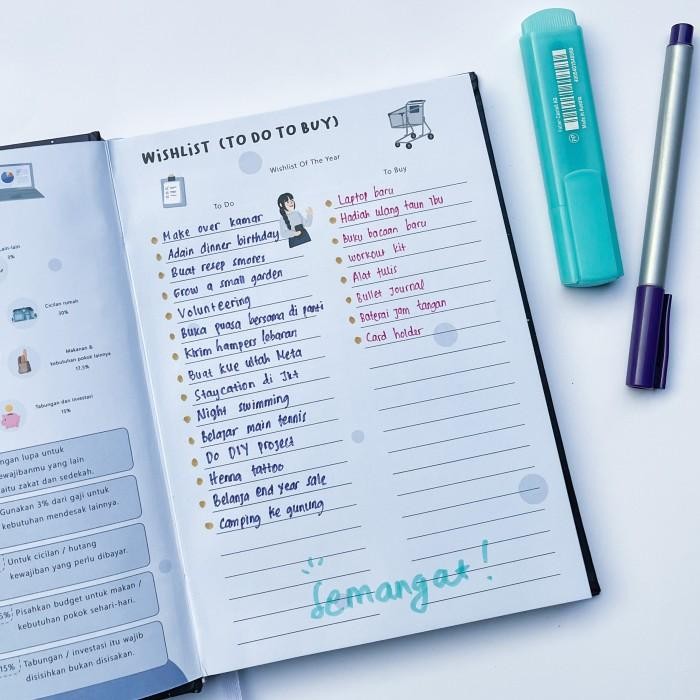 Lain-lain
Cicilan rumah
30%
Makanan &
kebutuhan pokok lainnya
17.5%
Tabungan dan investasi
15%
ngan lupa untuk
ewajibanmu yang lain
aitu zakat dan sedekah.
Gunakan 3% dari gaji untuk
kebutuhan mendesak lainnya.
Untuk cicilan / hutang
kewajiban yang perlu dibayar.
5% Pisahkan budget untuk makan /
kebutuhan pokok sehari-hari.
15% Tabungan / investasi itu wajib
disisihkan bukan disisakan.
WiSHLiST (TO DO TO BUY)
Wishlist Of The Year
To Do
Make over kamar
Adain dinner birthday
Buat resep smores
Grow a small garden
Volunteering
Buka puasa bersama di panti
Kirim hampers lebaran
Buat kue ultah Meta
Staycation di Jkt
Night swimming
Belajar main tennis
Do DIY project
Henna tattoo
Belanja end year sale
Camping ke gunung
To Buy
Laptop baru
Hadiah ulang taun Ibu
Buku bacaan baru
workout kit
Alat tulis
Bullet Journal
Baterai jam tangan
Card holder
Semangat!
Made in Austria